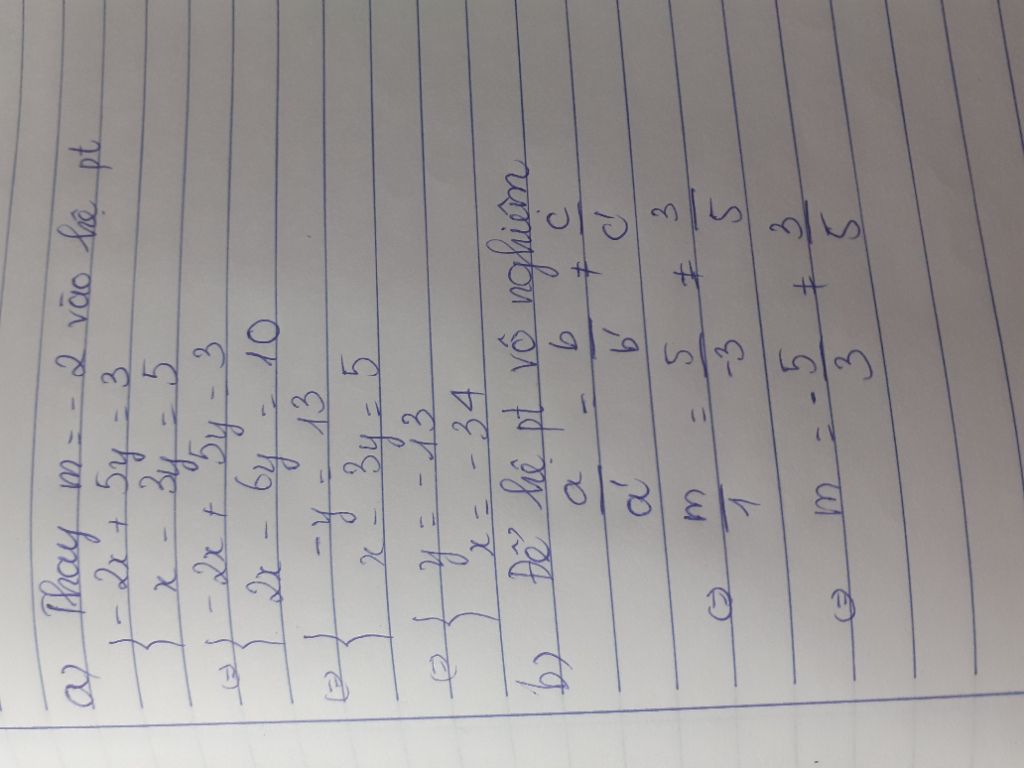 a) Thay m = -2 vào hệ pt
{ -2x + 5y = 3
x - 3y = 5
(=) { -2x + 5y = 3
2x - 6y = 10
(=) { -y = 13
x - 3y = 5
(=) { y = -13
x = -34
b) Để hệ pt vô nghiêm
a/a' = b/b' ≠ c/c'
(=) m/1 = 5/-3 ≠ 3/5
(=) m = -5/3 ≠ 3/5